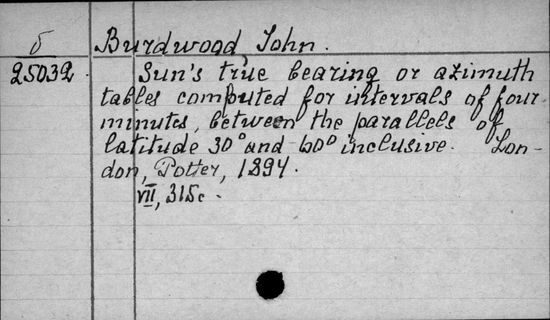 б Burdwood John.
25032. Sun's true bearing or azimuth
tables computed for intervals of four
minutes, between the parallels of
latitude 30° and 60° inclusive. Lon-
don, Potter, 1894.
VII, 315 c.